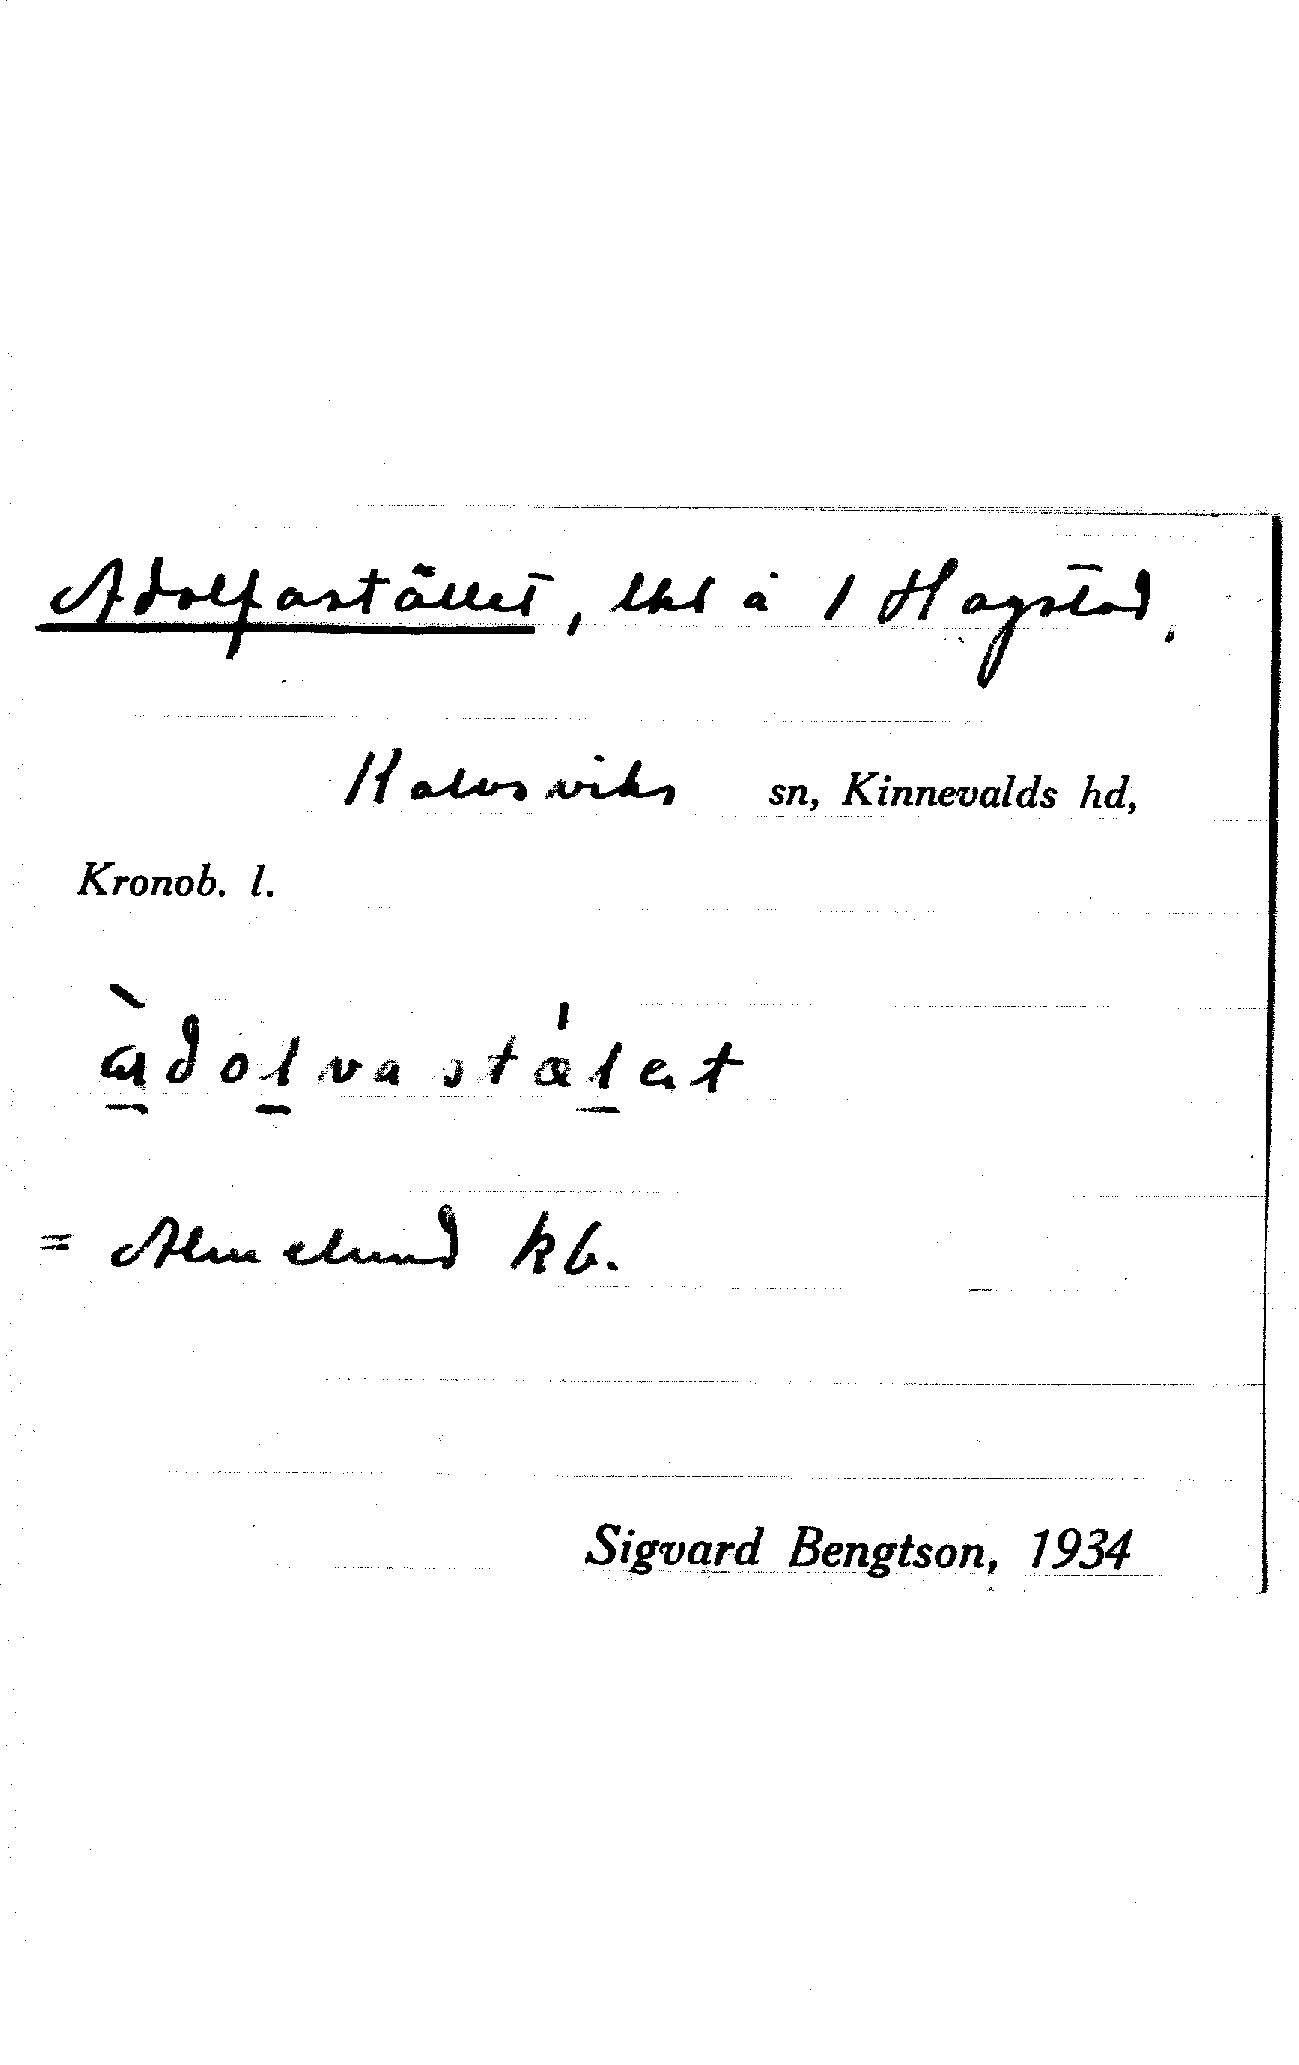 Adolfastället, lht å 1 Hagstad,
Kalvsviks sn, Kinnevalds hd,
Kronob. l.
àdolvastæ̍lət
= Almelund kb.
Sigvard Bengtson, 1934